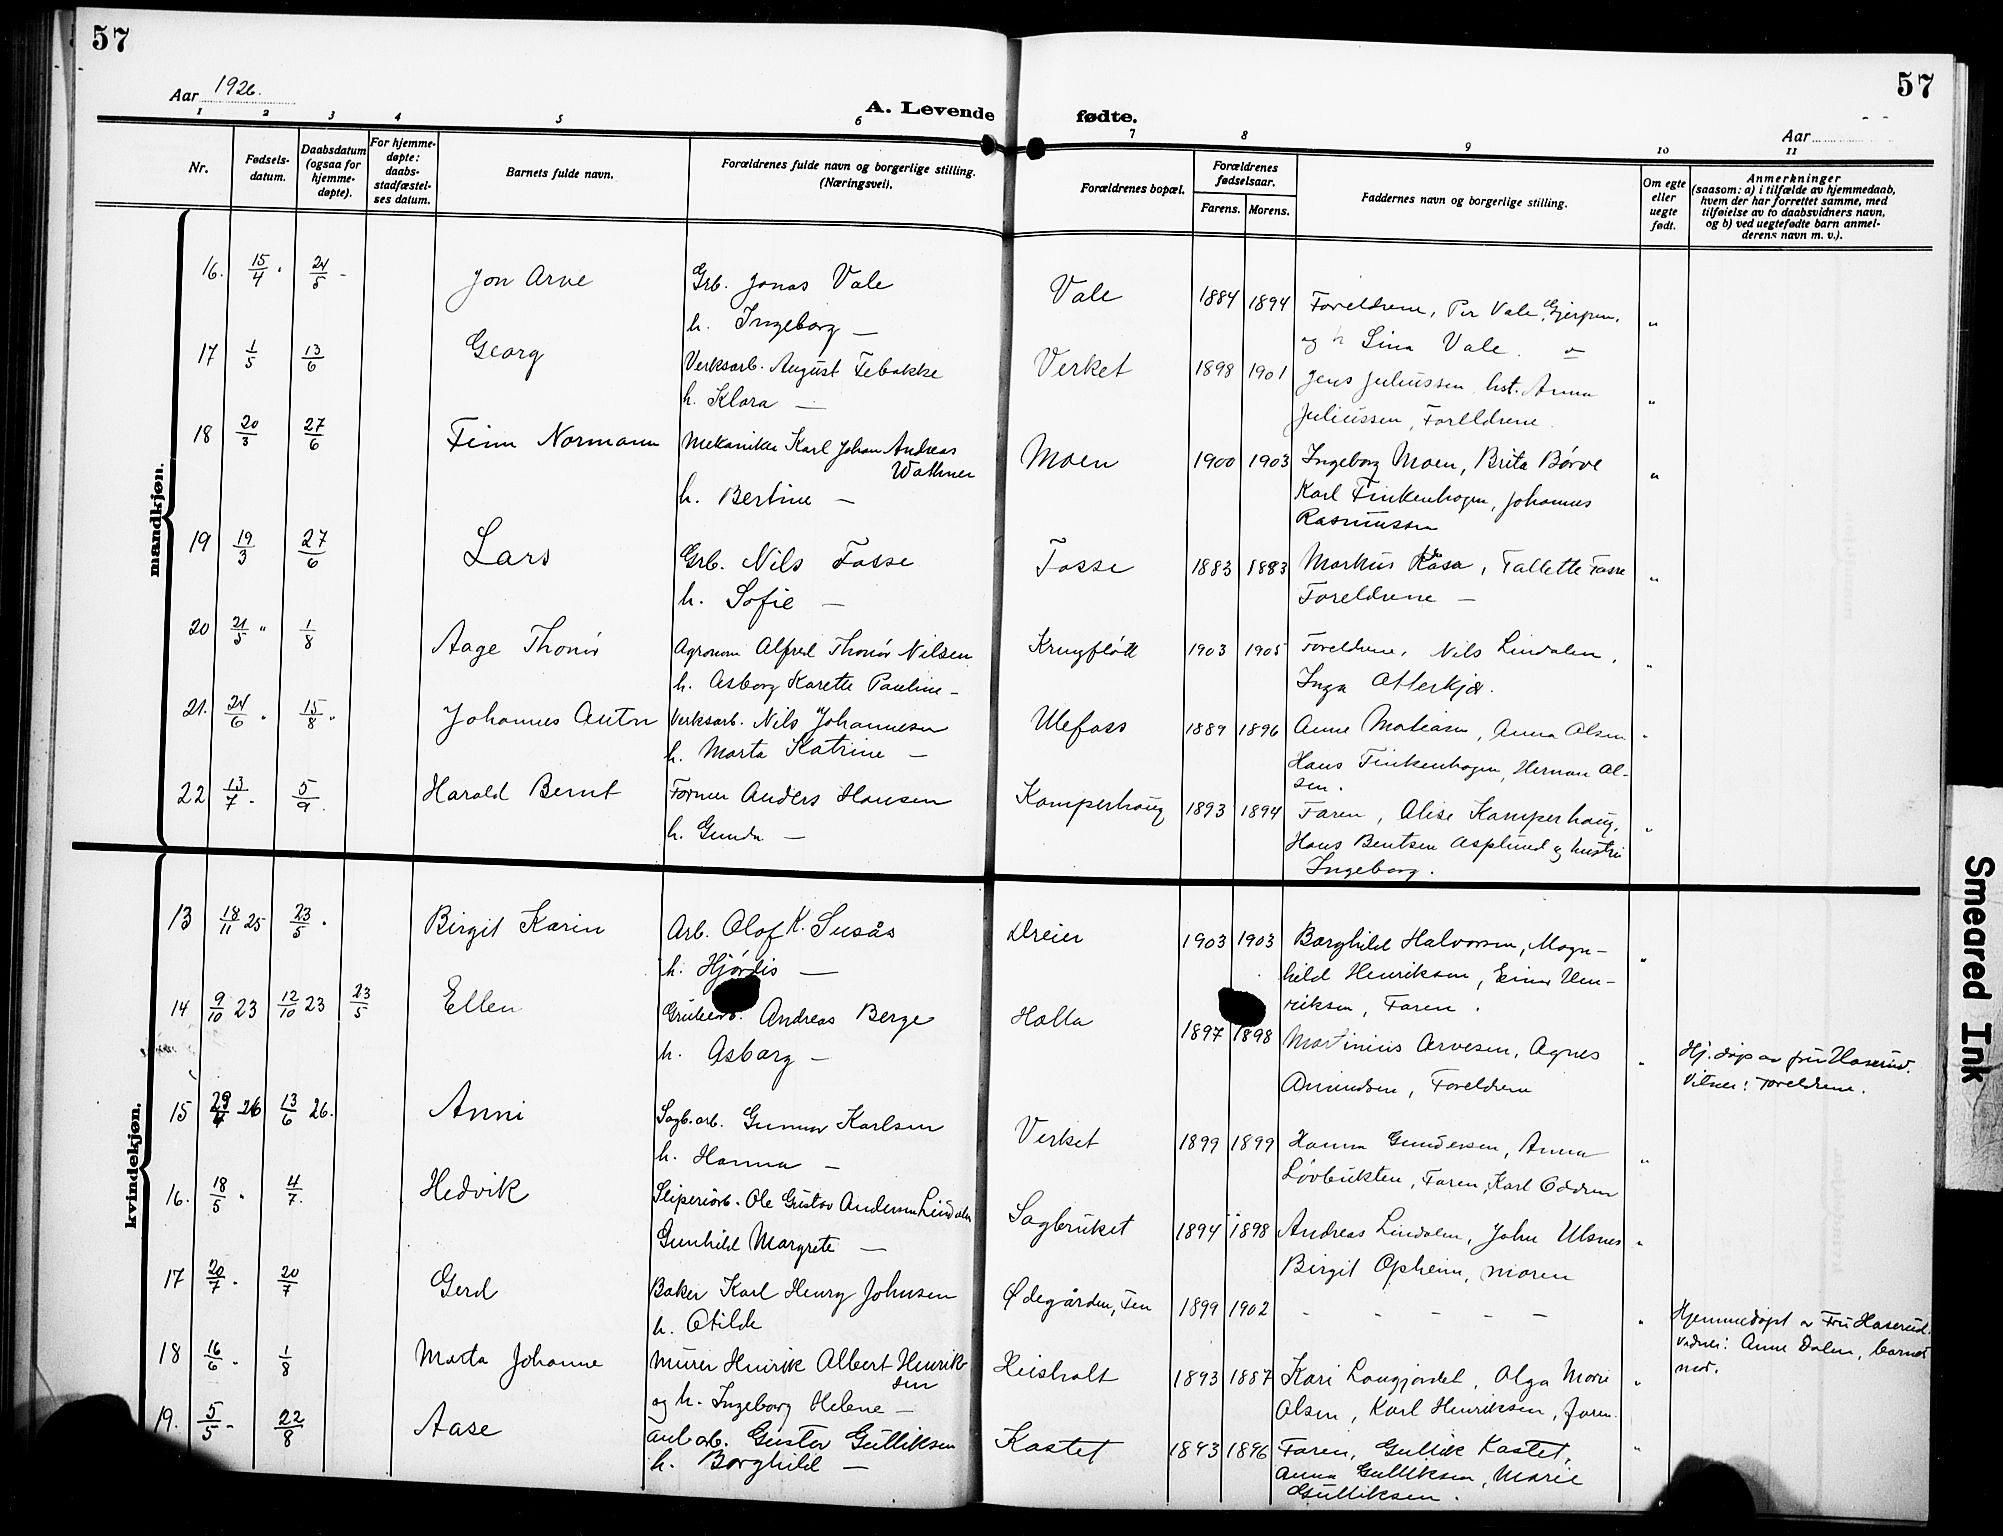 57
57
Aar 1926.
A. Levende fødte.
Aar
1 2 3 4 5 6 7 8 9 10 11
Nr.
Fødsels-
datum.
Daabsdatum
(ogsaa for
hjemme-
døpte).
For hjemme-
døpte:
daabs-
stadfæstel-
ses datum.
Barnets fulde navn.
Forældrenes fulde navn og borgerlige stilling.
(Næringsvei).
Forældrenes bopæl.
Forældrenes
fødselsaar.
Farens. Morens.
Faddernes navn og borgerlige stilling.
Om egte
eller
uegte
født.
Anmerkninger
(saasom: a) i tilfælde av hjemmedaab,
hvem der har forrettet samme, med
tilføielse av to daabsvidners navn,
og b) ved uegtefødte barn anmel-
derens navn m. v.).
mandkjøn.
16. 15/4 24/5 Jon Arve Grb. Jonas Vale Vale 1884 1894 Foreldrene, Per Vale, Gjerpen, "
h. Ingeborg — og Lina Vale.
17 1/5 13/6 Georg Verksarb. August Febakke Verket 1898 1901 Jens Juliussen, hst. Anna "
h. Klara — Juliussen, Forelldrene.
18 20/3 27/6 Finn Normann Mekaniker Karl Johan Andreas Wathner Moen 1900 1903 Ingeborg Moen, Brita Børve "
h. Bertine — Karl Finkenhagen, Johannes
Rasmussen
19 19/3 27/6 Lars Grb. Nils Fosse Fosse 1883 1883 Markus Kåsa, Tallette Fosse "
h. Sofie — Foreldrene —
20 21/5 " 1/8 Aage Thonür Agronom Alfred Thonür Nilsen Krugfløtt 1903 1905 Foreldrene, Nils Lindalen, "
h. Asborg Karette Pauline — Inga Atterkjær.
21. 24/6 15/8 Johannes Anton Verksarb. Nils Johannesen Ulefoss 1889 1896 Anne Matiasen, Anna Olsen "
h. Marta Katrine — Hans Finkenhagen, Herman Ol-
sen.
22 13/7 5/9 Harald Bernt Former Anders Hansen Kamperhaug 1893 1894 Faren, Alise Kamperhaug, "
h. Gunda — Hans Bentsen Asplund og hustru
Ingeborg.
kvindekjøn.
13 18/11 25 23/5 Birgit Karin Arb. Olof K. Susås Dreier 1903 1903 Borghild Halvorsen, Magn- "
h. Hjördis — hild Henriksen, Einar Hen-
riksen, Faren.
14 9/10 23 12/10 23 23/5 Ellen Grubearb. Andreas Berge Holla 1897 1898 Martinius Arvesen, Agnes " Hj. døpt av fru Haserud.
h. Asbørg — Amundsen, Foreldrene Vitner: Foreldrene.
15 29/4 26 13/6 26. Anni Sagb.arb. Gunnar Karlsen Verket 1899 1899 Hanna Gundersen, Anna "
h. Hanna — Løvbukten, Faren, Karl Oddren
16. 18/5 4/7 Hedvik Sliperiarb. Ole Gustav Andersen Lindalen Sagbruket 1894 1898 Andreas Lindalen, John Ulsnes "
Gunhild Margrete — Birgit Opheim, moren
17 20/7 20/7 Gerd Baker Karl Henry Johnsen Ødegården, Fen 1899 1902 — — — — — " Hjemmedøpt av Fru Haserud.
h. Otilde Vidner: Anne Dalen, barnets
mor.
18 16/6 1/8 Marta Johanne Murer Henrik Albert Henrik- Heisholt 1893 1887 Kari Langjordet, Olga Marie "
sen
og h. Ingeborg Helene — Olsen, Karl Henriksen, faren.
19. 5/5 22/8 Aase Anl.arb. Gustav Gulliksen Kastet 1893 1896 Faren, Gullik Kastet, "
h. Borghild — Anna Gulliksen, Marie
Gulliksen.
Smeared Ink